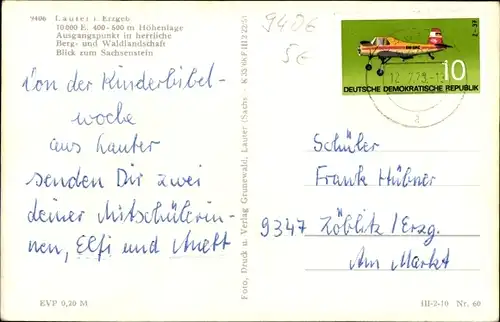 9406 Lauter i. Erzgeb
10 000 E. 400 - 600 m Höhenlage
Ausgangspunkt in herrliche
Berg- und Waldlandschaft
Blick zum Sachsenstein
9406
5€
10
DEUTSCHE DEMOKRATISCHE REPUBLIK
Von der Kinderbibel-
woche
aus Lauter
senden Dir zwei
deiner Mitschülerin-
nen, Elfi und Anett
Foto, Druck u. Verlag Grunewald, Lauter (Sachs.
Schüler
Frank Hübner
9347 Zöblitz / Erzg.
Am Markt
EVP 0,20 M
III-2-10 Nr. 60